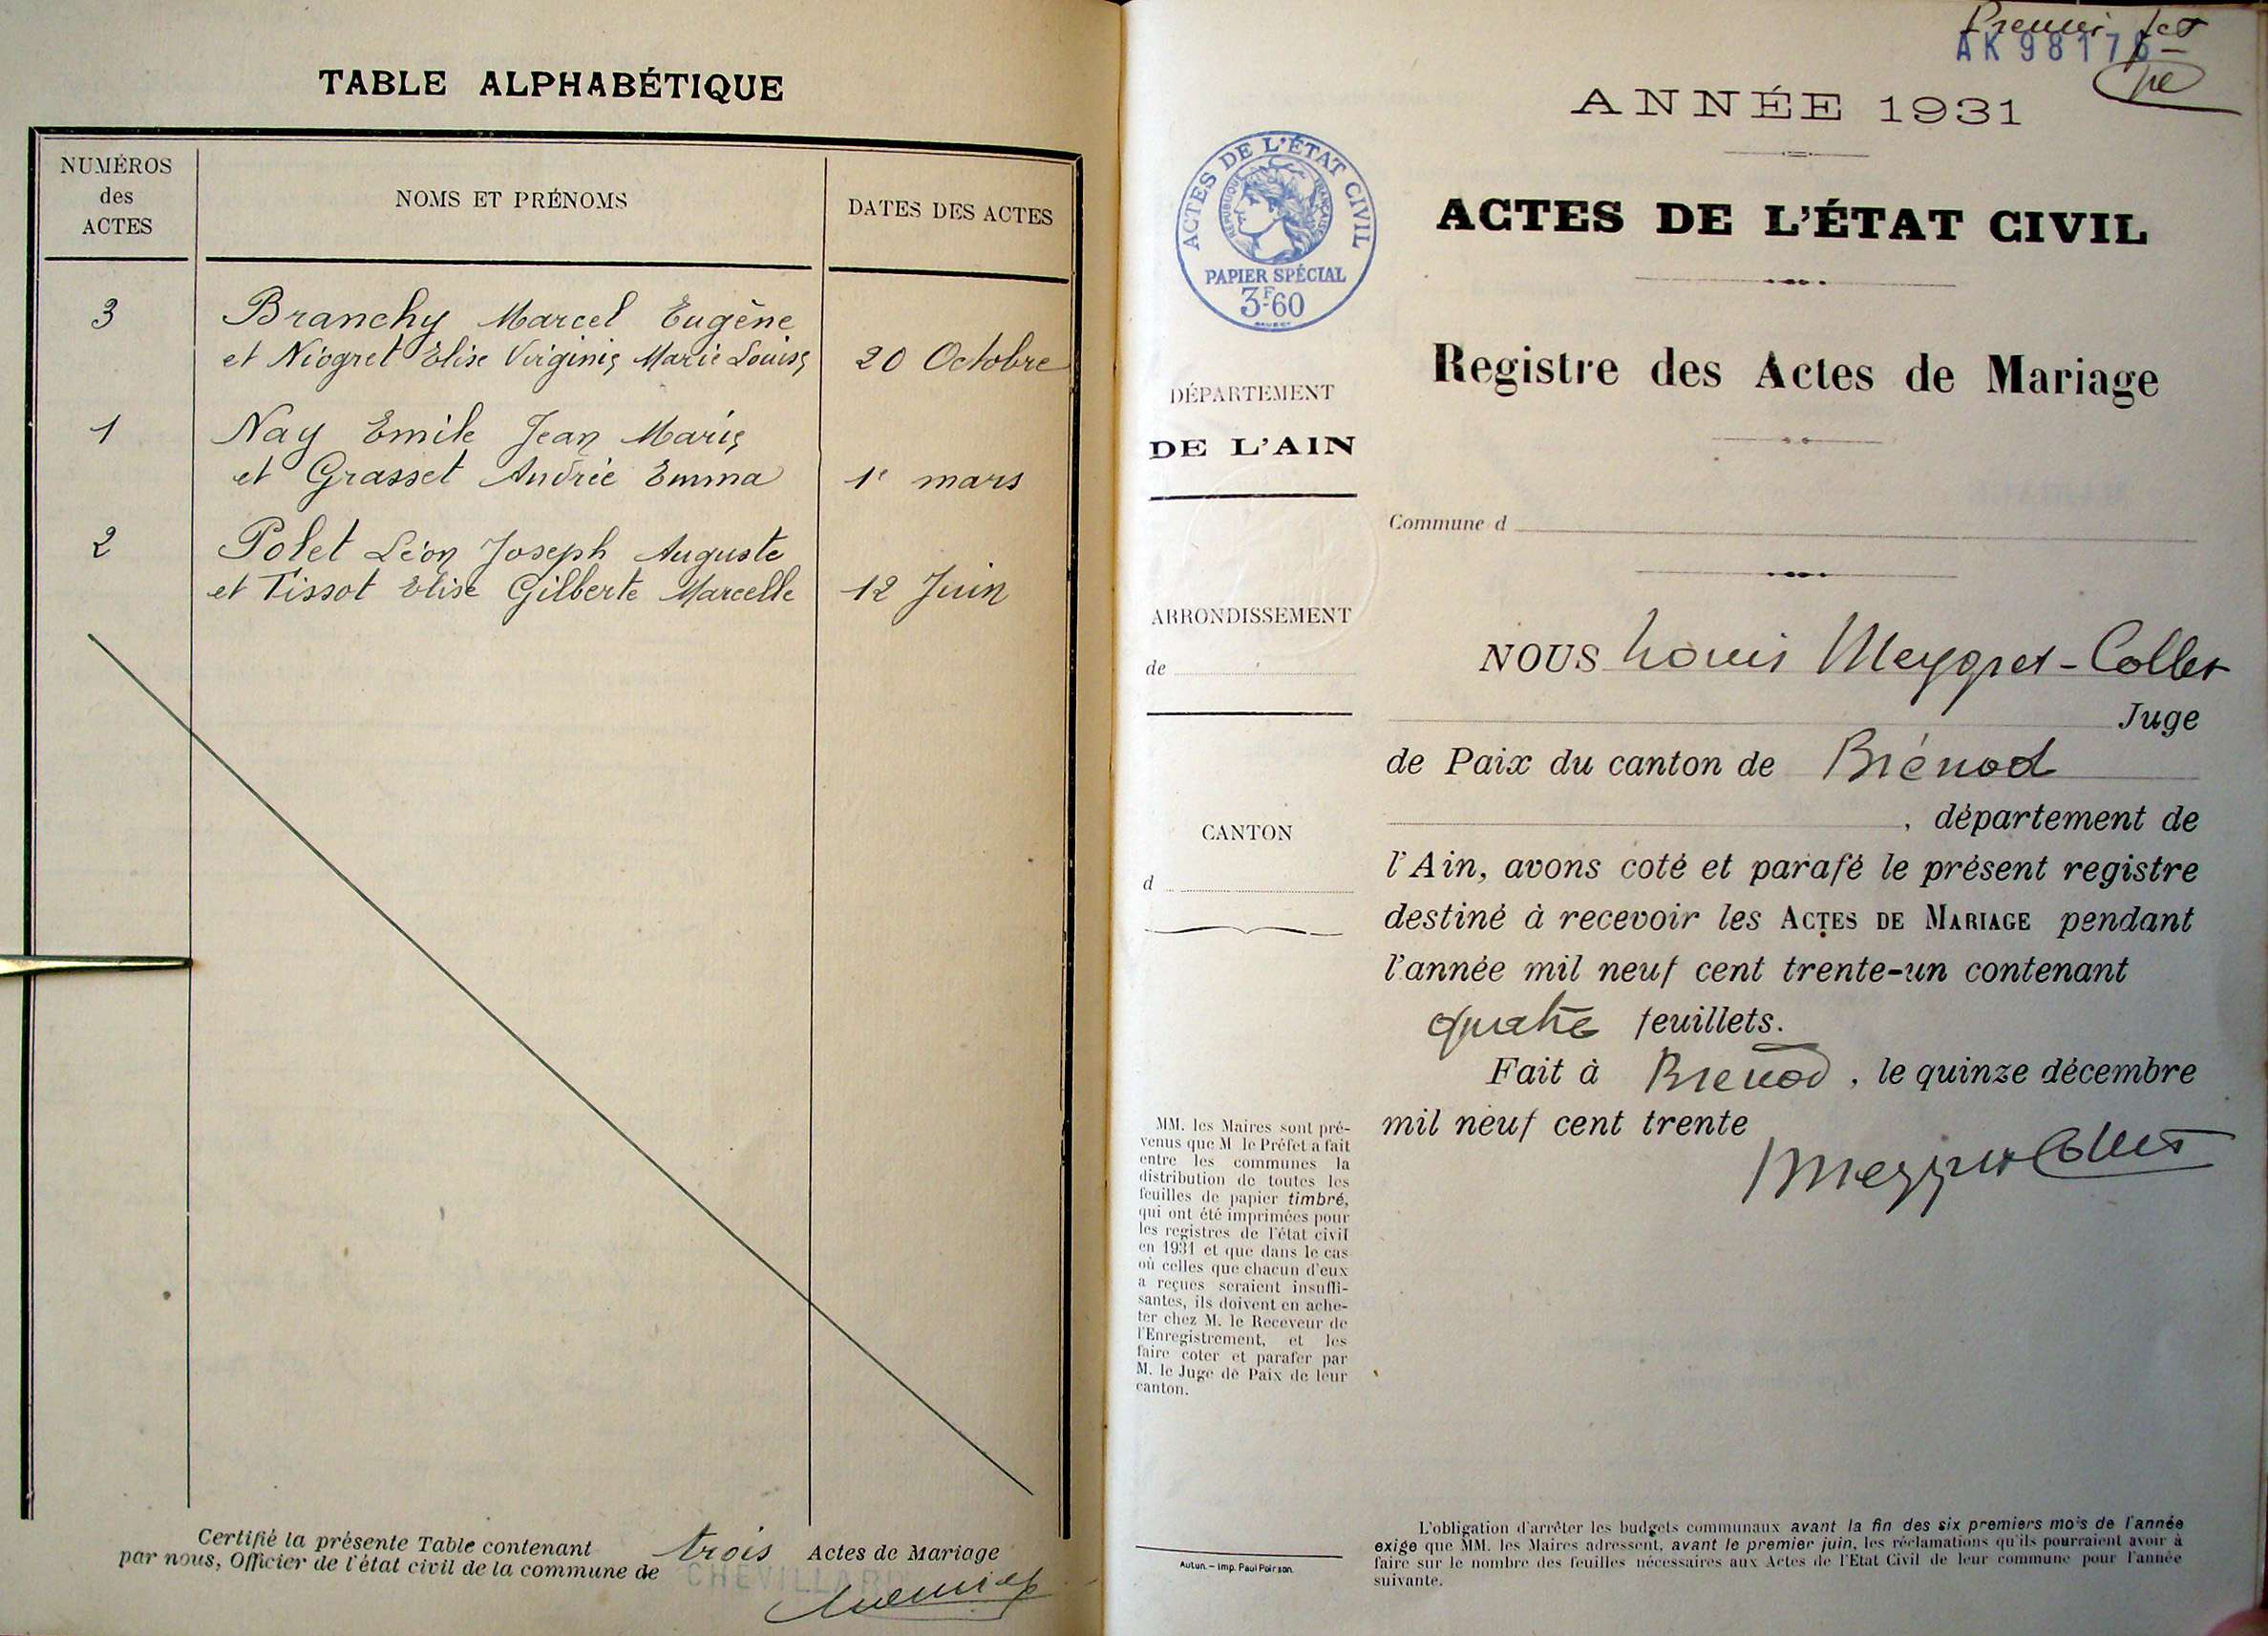 TABLE ALPHABÉTIQUE
NUMÉROS
des
ACTES
NOMS ET PRÉNOMS
DATES DES ACTES
3
Branchy Marcel Eugène
et Niogret Elise Virginie Marie Louise
20 Octobre
1
Nay Emile Jean Marie
et Grasset Andrée Emma
1e mars
2
Polet Léon Joseph Auguste
et Tissot Elise Gilberte Marcelle
12 Juin
Certifié la présente Table contenant trois Actes de Mariage
par nous, Officier de l'état civil de la commune de CHEVILLARD
Premier
AK 98176
ANNÉE 1931
ACTES DE L'ÉTAT CIVIL
RÉPUBLIQUE FRANÇAISE
PAPIER SPÉCIAL
3F60
ACTES DE L'ÉTAT CIVIL
Registre des Actes de Mariage
DÉPARTEMENT
DE L'AIN
Commune d
ARRONDISSEMENT
de
CANTON
d
NOUS Louis Meygret-Collet
Juge
de Paix du canton de Brénod
, département de
l'Ain, avons coté et parafé le présent registre
destiné à recevoir les ACTES DE MARIAGE pendant
l'année mil neuf cent trente-un contenant
quatre feuillets.
Fait à Brénod, le quinze décembre
mil neuf cent trente
Meygret Collet
MM. les Maires sont pré-
venus que M le Préfet a fait
entre les communes la
distribution de toutes les
feuilles de papier timbré,
qui ont été imprimées pour
les registres de l'état civil
en 1931 et que dans le cas
où celles que chacun d'eux
a reçues seraient insuffi-
santes, ils doivent en ache-
ter chez M. le Receveur de
l'Enregistrement, et les
faire coter et parafer par
M. le Juge de Paix de leur
canton.
Autun. — Imp. Paul Poirson.
L'obligation d'arrêter les budgets communaux avant la fin des six premiers mois de l'année
exige que MM. les Maires adressent, avant le premier juin, les réclamations qu'ils pourraient avoir à
faire sur le nombre des feuilles nécessaires aux Actes de l'Etat Civil de leur commune pour l'année
suivante.